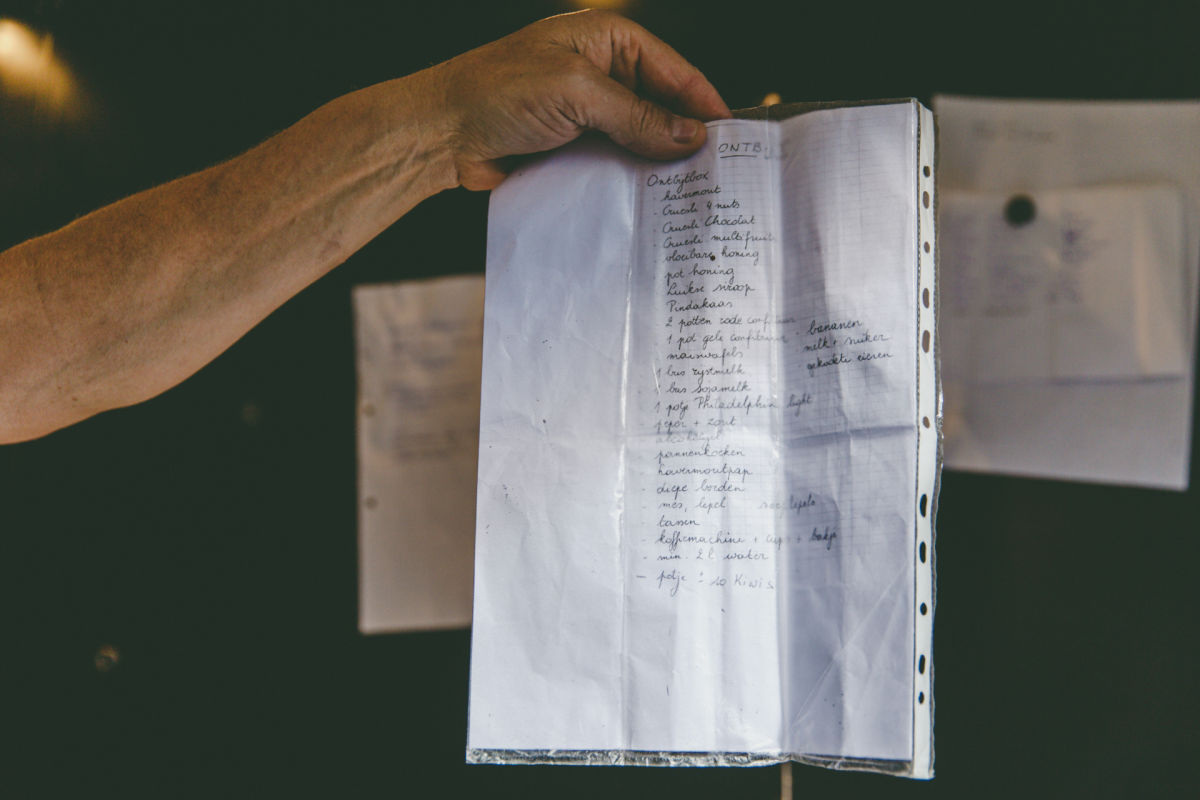 ONTB
Ontbijtbox
- havermout
- Cruesli 4 nuts
- Cruesli Chocolat
- Cruesli multifruit
- vloeibare honing
- pot honing
- Luikse siroop
- Pindakaas
- 2 potten rode confituur
- 1 pot gele confituur
- maiswafels
- 1 bus rystmelk
- 1 bus sojamelk
- 1 potje Philadelphia light
- peper + zout
- alcoholgel
- pannenkoeken
- havermoutpap
- diepe borden
- mes, lepel lepels
- tassen
- koffiemachine + cups + bakje
- min. 2 l water
- potje ± 10 Kiwi's
- bananen
- melk + suiker
- gekookte eieren